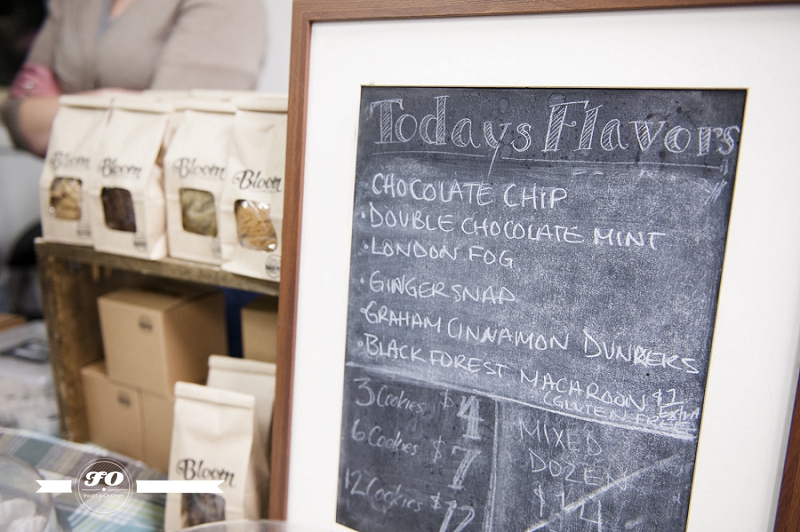 Bloom
Bloom
Bloom
Bloom
Todays Flavors
CHOCOLATE CHIP
• DOUBLE CHOCOLATE MINT
• LONDON FOG
• GINGERSNAP
• GRAHAM CINNAMON DUNKERS
• BLACK FOREST MACAROON $1
(GLUTEN FREE)
3 Cookies $4
6 Cookies $7
12 Cookies $12
MIXED
DOZEN
$14
Bloom
FO
PHOTOGRAPHY